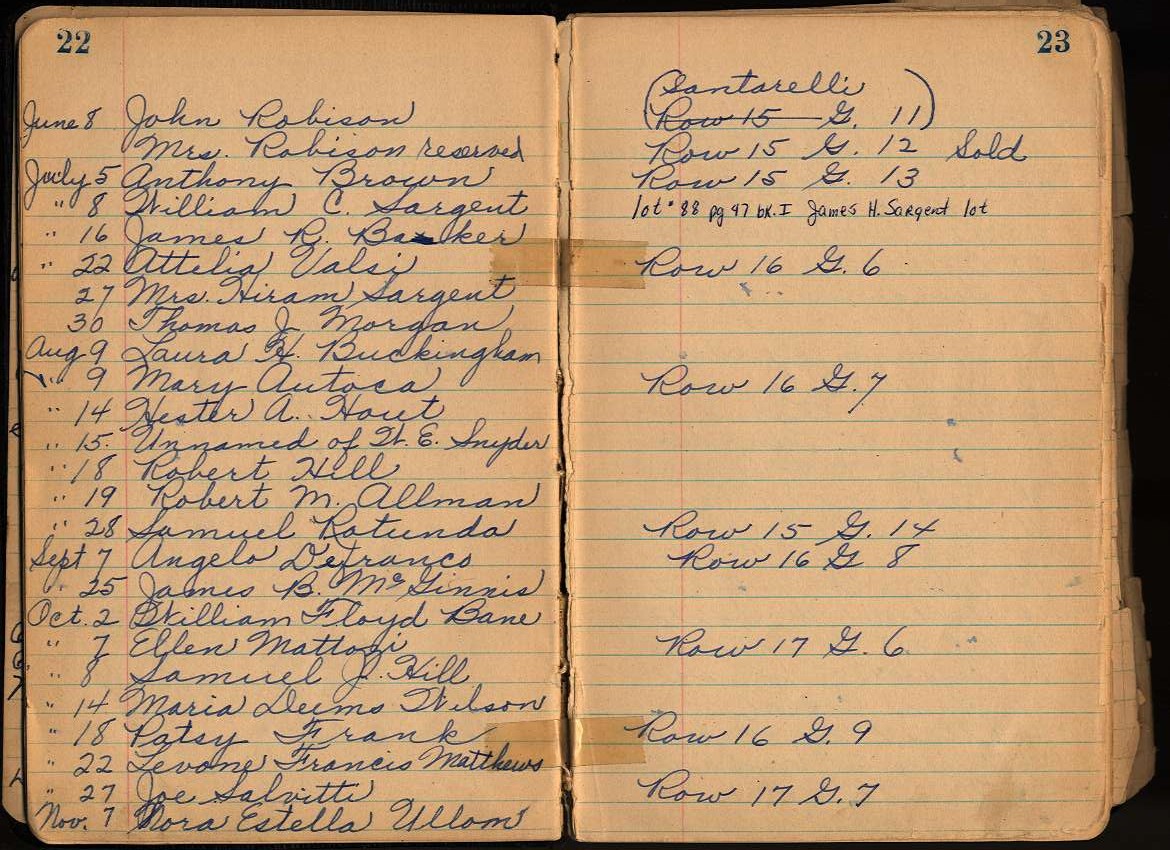 22
June 8 John Robison
Mrs. Robison reserved
July 5 Anthony Brown
" 8 William C. Sargent
" 16 James R. Barker
" 22 Attelia Valsi
27 Mrs. Hiram Sargent
30 Thomas J. Morgan
Aug 9 Laura H. Buckingham
" 9 Mary Autoca
" 14 Hester A. Hout
" 15. Unnamed of W. E. Snyder
" 18 Robert Hill
" 19 Robert M. Allman
" 28 Samuel Rotunda
Sept 7 Angelo Defranco
" 25 James B. McGinnis
Oct. 2 William Floyd Bane
" 7 Ellen Mattozi
" 8 Samuel J. Hill
" 14 Maria Deems Wilson
" 18 Patsy Frank
" 22 Levone Francis Matthews
" 27 Joe Salvitti
Nov. 7 Nora Estella Ullom
23
(Santarelli
Row 15 G. 11)
Row 15 G. 12 Sold
Row 15 G. 13
lot # 88 pg 47 bk. I James H. Sargent lot
Row 16 G. 6
Row 16 G. 7
Row 15 G. 14
Row 16 G 8
Row 17 G. 6
Row 16 G. 9
Row 17 G. 7